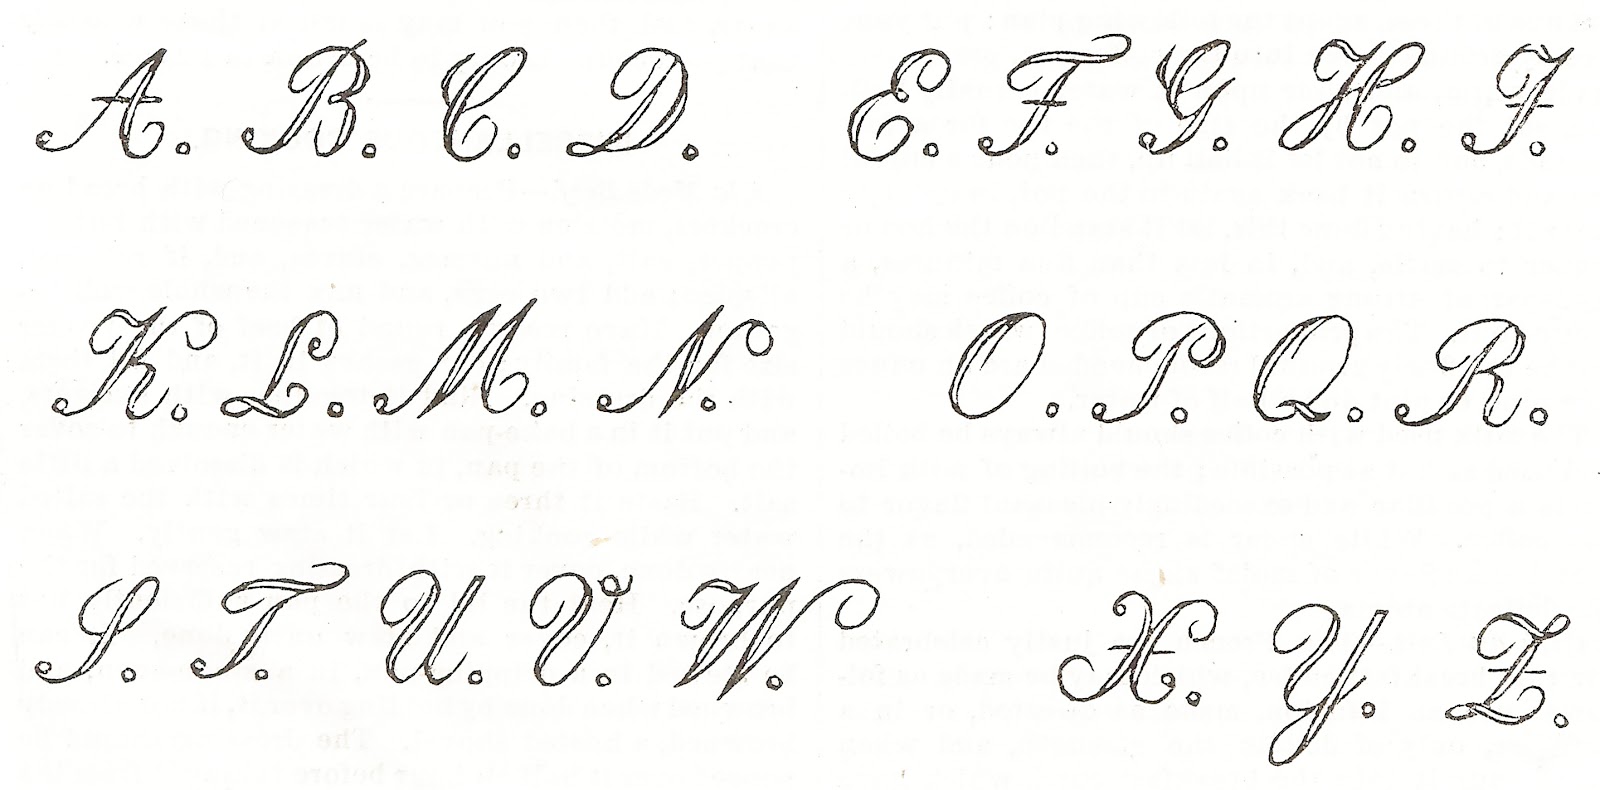 A. B. C. D. E. F. G. H. I.
K. L. M. N. O. P. Q. R.
S. T. U. V. W. X. Y. Z.